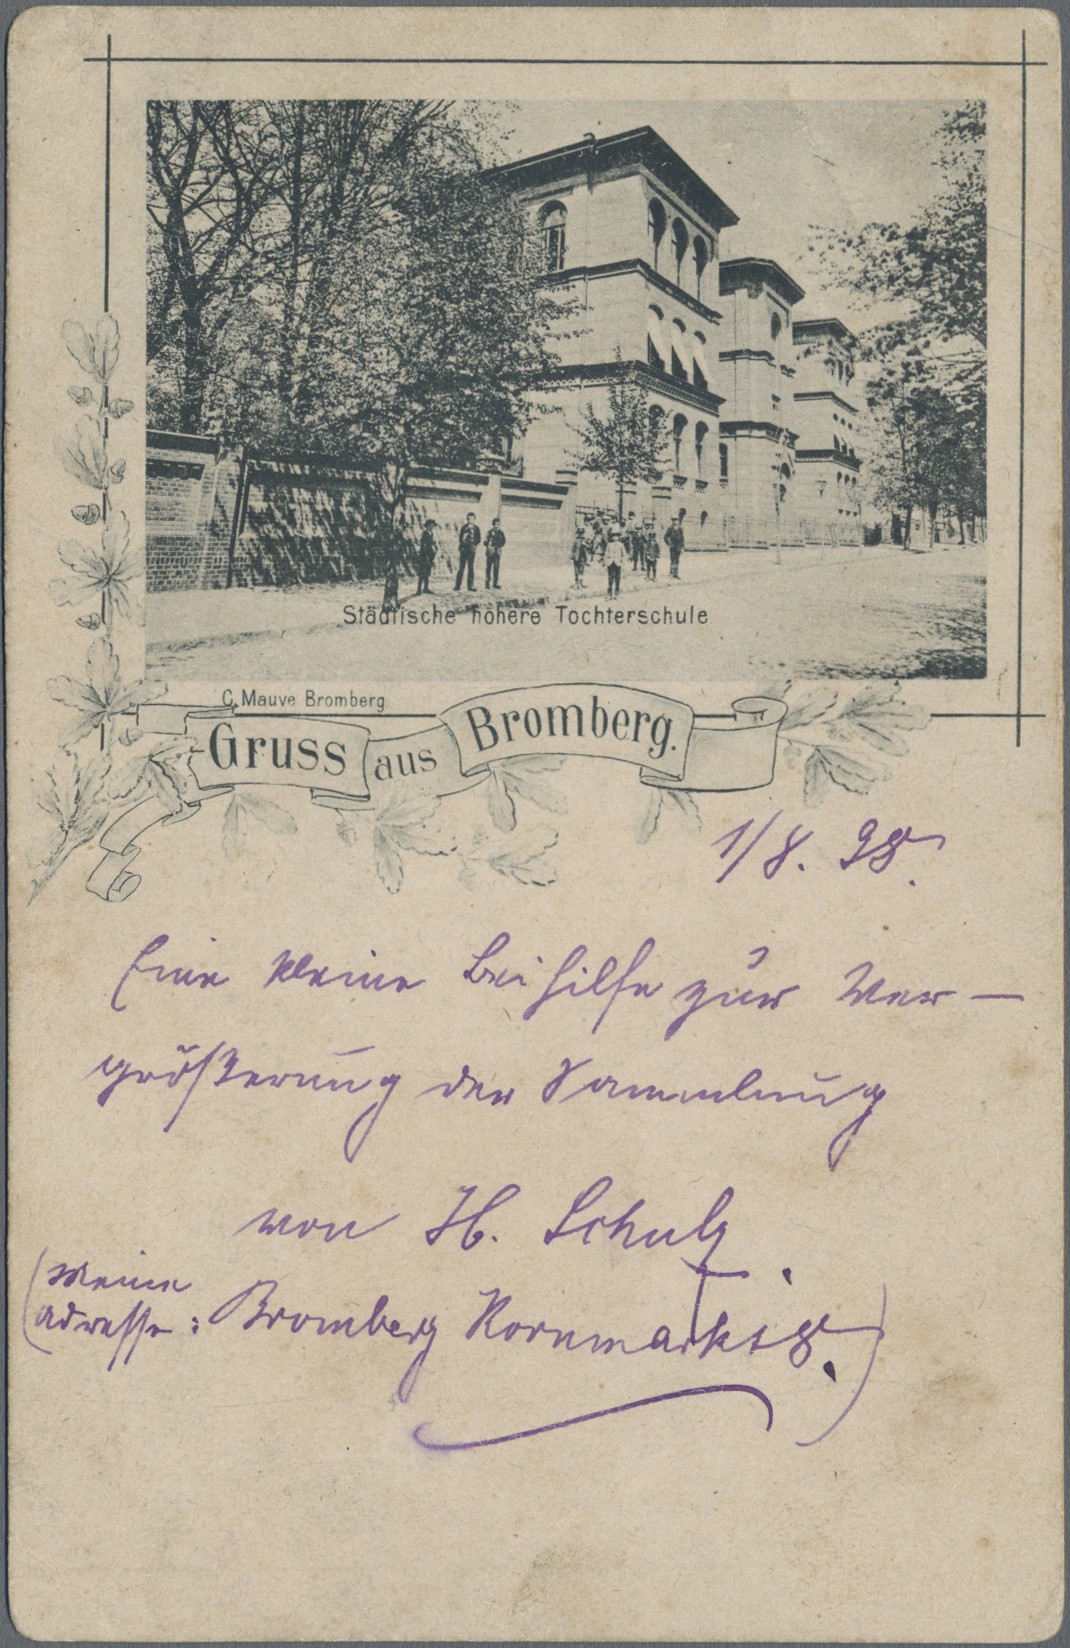 Städtische höhere Tochterschule
C. Mauve Bromberg
Gruss aus Bromberg.
1/8. 98.
Eine kleine Beihilfe zur Ver–
größerung der Sammlung
von H. Schulz.
(Meine
Adresse: Bromberg Kornmarkt 8.)